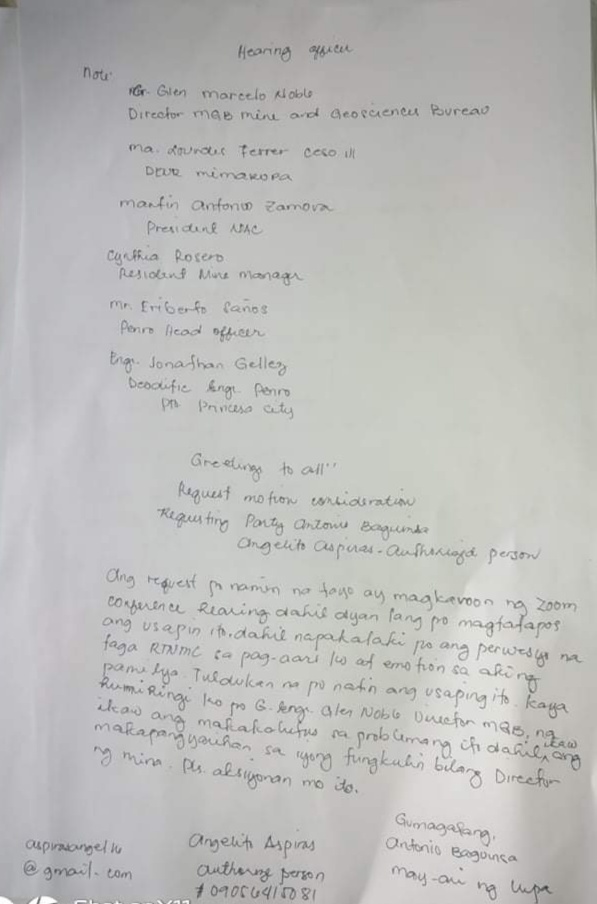 Hearing officer
Note:
Gr. Glen marcelo Noble
Director MGB mine and Geosciences Bureau
ma. Lourdes Ferrer ceso III
DENR mimaropa
martin Antonio Zamora
President NAC
Cynthia Rosero
Resident Mine manager
mr. Eriberto Saños
Penro Head officer
Engr. Jonathan Gellez
Deodific Engr. Penro
Princesa city
Greetings to all"
Request motion consideration
Requesting Party Antonio Baguinsa
Angelito Aspiras - Authorized person
Ang request po namin na tayo ay magkaroon ng Zoom
conference Hearing dahil dyan lang po magtatapos
ang usapin ito. dahil napakalaki po ang perwesyo na
taga RTNMC sa pag-aari ko at emotion sa aking
pamilya. Tuldukan na po natin ang usaping ito. kaya
humihingi ko po G. Engr. Glen Noble Director MGB, na ikaw
ikaw ang makakalutas sa problemang ito dahil ang
makapangyarihan sa iyong tungkulin bilang Director
ng mina. pls. aksiyonan mo ito.
Gumagalang,
aspirasangelito Angelito Aspiras Antonio Baguinsa
@gmail.com authorize person may-ari ng lupa
# 09056415081